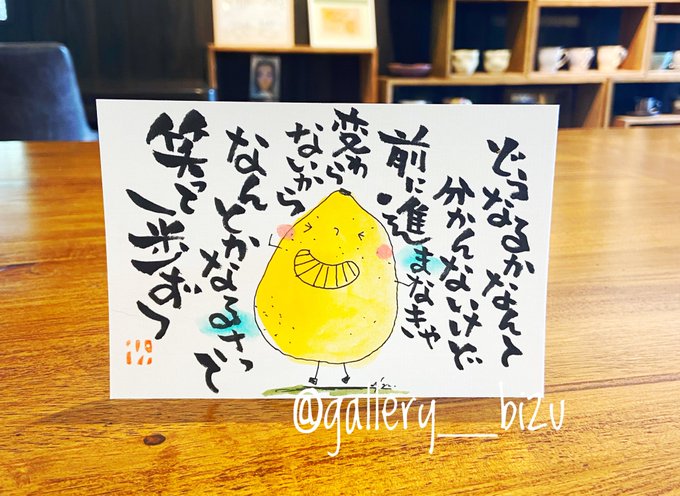 どうなるかなんて
分かんないけど
前に進まなきゃ
変わら
ないから
なんとかなるさって
笑って一歩ずつ
@gallery__bizu